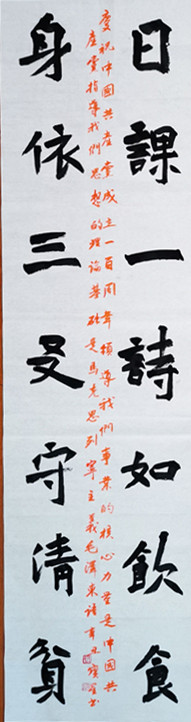 日課一詩如飲食
慶祝中國共產黨成立一百周年領導我們事業的核心力量是中國共
產黨指導我們思想的理論基礎是馬克思列寧主義毛澤東語辛丑書
身依三守清貧